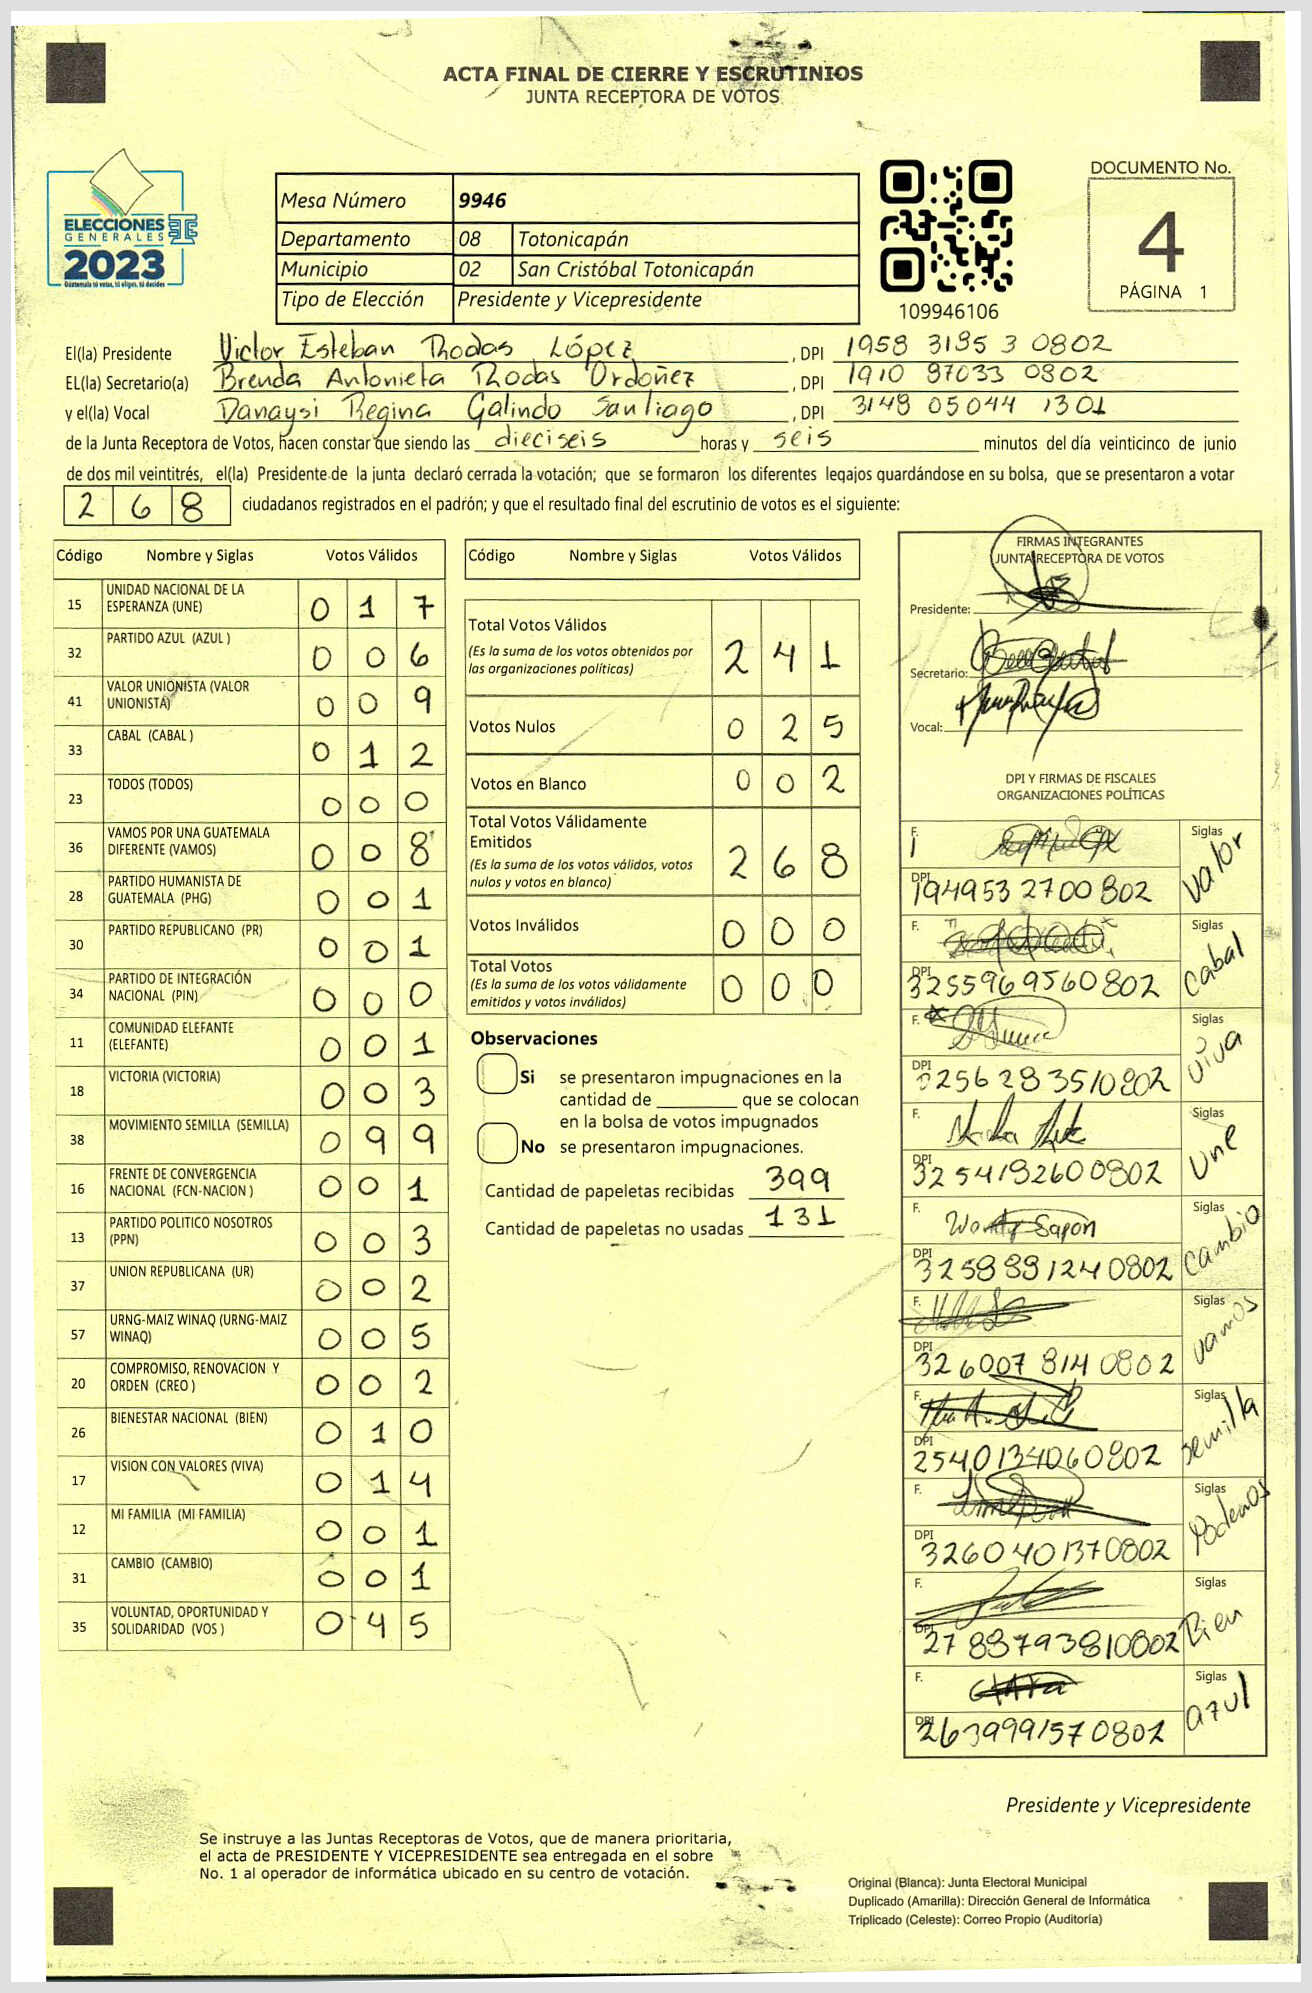 ACTA FINAL DE CIERRE Y ESCRUTINIOS
JUNTA RECEPTORA DE VOTOS
ELECCIONES
GENERALES
2023
Guatemala tú votas, tú eliges, tú decides
Mesa Número 9946
Departamento 08 Totonicapán
Municipio 02 San Cristóbal Totonicapán
Tipo de Elección Presidente y Vicepresidente
109946106
DOCUMENTO No.
4
PÁGINA 1
El(la) Presidente Victor Esteban Rodas López, DPI 1958 3185 3 0802
EL(la) Secretario(a) Brenda Antonieta Rodas Ordoñez, DPI 1910 87033 0802
y el(la) Vocal Danaysi Regina Galindo Santiago, DPI 3148 05044 1301
de la Junta Receptora de Votos, hacen constar que siendo las dieciseis horas y seis minutos del día veinticinco de junio
de dos mil veintitrés, el(la) Presidente de la junta declaró cerrada la votación; que se formaron los diferentes legajos guardándose en su bolsa, que se presentaron a votar
268 ciudadanos registrados en el padrón; y que el resultado final del escrutinio de votos es el siguiente:
Código Nombre y Siglas Votos Válidos
15 UNIDAD NACIONAL DE LA ESPERANZA (UNE) 0 1 7
32 PARTIDO AZUL (AZUL ) 0 0 6
41 VALOR UNIONISTA (VALOR UNIONISTA) 0 0 9
33 CABAL (CABAL ) 0 1 2
23 TODOS (TODOS) 0 0 0
36 VAMOS POR UNA GUATEMALA DIFERENTE (VAMOS) 0 0 8
28 PARTIDO HUMANISTA DE GUATEMALA (PHG) 0 0 1
30 PARTIDO REPUBLICANO (PR) 0 0 1
34 PARTIDO DE INTEGRACIÓN NACIONAL (PIN) 0 0 0
11 COMUNIDAD ELEFANTE (ELEFANTE) 0 0 1
18 VICTORIA (VICTORIA) 0 0 3
38 MOVIMIENTO SEMILLA (SEMILLA) 0 9 9
16 FRENTE DE CONVERGENCIA NACIONAL (FCN-NACION ) 0 0 1
13 PARTIDO POLITICO NOSOTROS (PPN) 0 0 3
37 UNION REPUBLICANA (UR) 0 0 2
57 URNG-MAIZ WINAQ (URNG-MAIZ WINAQ) 0 0 5
20 COMPROMISO, RENOVACION Y ORDEN (CREO ) 0 0 2
26 BIENESTAR NACIONAL (BIEN) 0 1 0
17 VISION CON VALORES (VIVA) 0 1 4
12 MI FAMILIA (MI FAMILIA) 0 0 1
31 CAMBIO (CAMBIO) 0 0 1
35 VOLUNTAD, OPORTUNIDAD Y SOLIDARIDAD (VOS ) 0 4 5
Código Nombre y Siglas Votos Válidos
Total Votos Válidos
(Es la suma de los votos obtenidos por las organizaciones políticas) 2 4 1
Votos Nulos 0 2 5
Votos en Blanco 0 0 2
Total Votos Válidamente Emitidos
(Es la suma de los votos válidos, votos nulos y votos en blanco) 2 6 8
Votos Inválidos 0 0 0
Total Votos
(Es la suma de los votos válidamente emitidos y votos inválidos) 0 0 0
Observaciones
Si se presentaron impugnaciones en la
cantidad de ________ que se colocan
en la bolsa de votos impugnados
No se presentaron impugnaciones.
Cantidad de papeletas recibidas 399
Cantidad de papeletas no usadas 131
FIRMAS INTEGRANTES
JUNTA RECEPTORA DE VOTOS
Presidente:
Secretario:
Vocal:
DPI Y FIRMAS DE FISCALES
ORGANIZACIONES POLÍTICAS
F. Siglas Valor
DPI 194953 2700802
F. Siglas Cabal
DPI 3255969560802
F. Siglas Viva
DPI 3256283510802
F. Siglas Une
DPI 3254182600802
F. Sapon Siglas Cambio
DPI 3258881240802
F. Siglas Vamos
DPI 326007 814 0802
F. Siglas Semilla
DPI 2540134060802
F. Siglas Podemos
DPI 3260401370802
F. Siglas Bien
DPI 2788793810802
F. Siglas azul
DPI 2639991570802
Presidente y Vicepresidente
Se instruye a las Juntas Receptoras de Votos, que de manera prioritaria,
el acta de PRESIDENTE Y VICEPRESIDENTE sea entregada en el sobre
No. 1 al operador de informática ubicado en su centro de votación.
Original (Blanca): Junta Electoral Municipal
Duplicado (Amarilla): Dirección General de Informática
Triplicado (Celeste): Correo Propio (Auditoría)